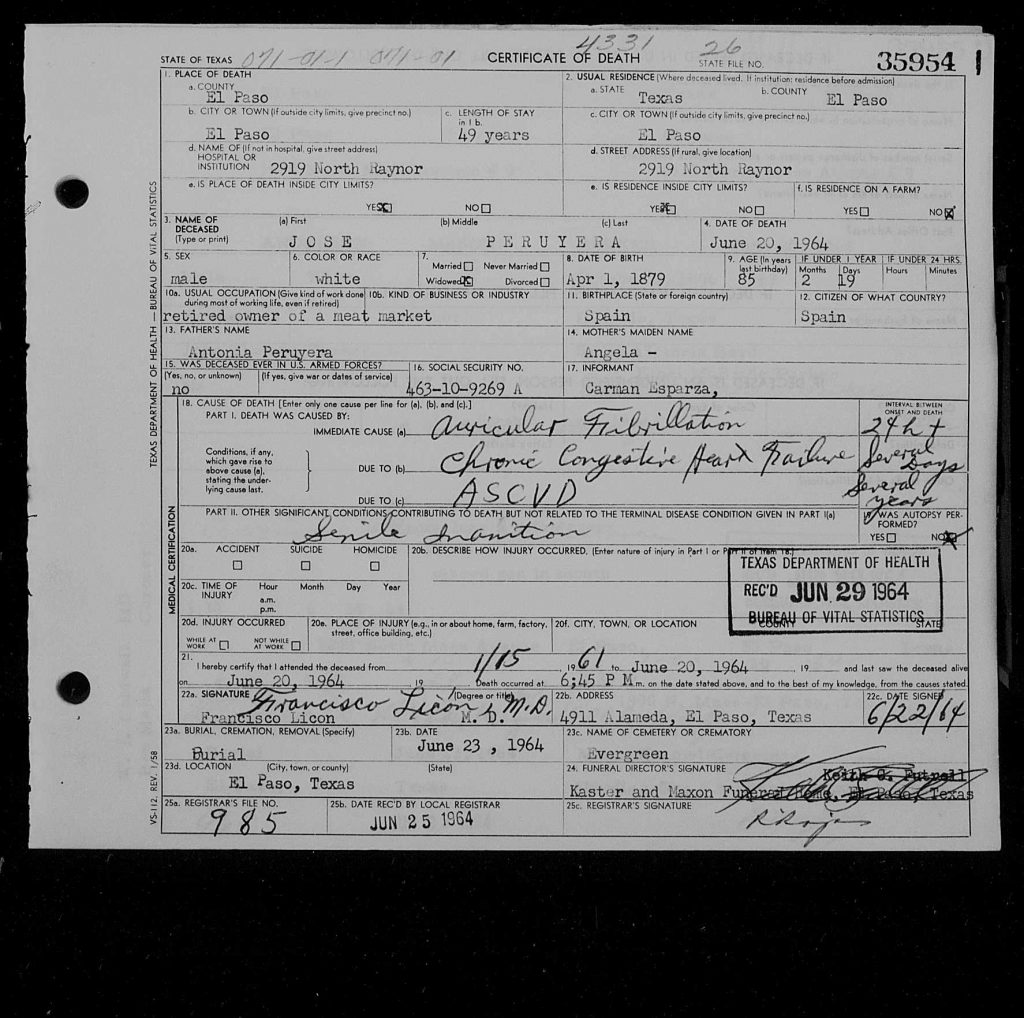 4331 26
STATE OF TEXAS 071-01-1 071-01 CERTIFICATE OF DEATH STATE FILE NO. 35954 1
1. PLACE OF DEATH
a. COUNTY
El Paso
2. USUAL RESIDENCE (Where deceased lived. If institution: residence before admission)
a. STATE b. COUNTY
Texas El Paso
b. CITY OR TOWN (If outside city limits, give precinct no.) c. LENGTH OF STAY in 1 b.
El Paso 49 years
c. CITY OR TOWN (If outside city limits, give precinct no.)
El Paso
d. NAME OF (If not in hospital, give street address)
HOSPITAL OR
INSTITUTION 2919 North Raynor
d. STREET ADDRESS (If rural, give location)
2919 North Raynor
e. IS PLACE OF DEATH INSIDE CITY LIMITS?
YES X NO
e. IS RESIDENCE INSIDE CITY LIMITS? f. IS RESIDENCE ON A FARM?
YES X NO YES NO X
3. NAME OF DECEASED (Type or print) (a) First (b) Middle (c) Last
JOSE PERUYERA
4. DATE OF DEATH
June 20, 1964
5. SEX
male
6. COLOR OR RACE
white
7. Married Never Married
Widowed X Divorced
8. DATE OF BIRTH
Apr 1, 1879
9. AGE (In years last birthday)
85
IF UNDER 1 YEAR IF UNDER 24 HRS.
Months Days Hours Minutes
2 19
10a. USUAL OCCUPATION (Give kind of work done during most of working life, even if retired) 10b. KIND OF BUSINESS OR INDUSTRY
retired owner of a meat market
11. BIRTHPLACE (State or foreign country)
Spain
12. CITIZEN OF WHAT COUNTRY?
Spain
13. FATHER'S NAME
Antonia Peruyera
14. MOTHER'S MAIDEN NAME
Angela -
15. WAS DECEASED EVER IN U.S. ARMED FORCES?
(Yes, no, or unknown) (If yes, give war or dates of service)
no
16. SOCIAL SECURITY NO.
463-10-9269 A
17. INFORMANT
Carman Esparza,
18. CAUSE OF DEATH [Enter only one cause per line for (a), (b), and (c).]
INTERVAL BETWEEN ONSET AND DEATH
PART I. DEATH WAS CAUSED BY:
IMMEDIATE CAUSE (a) Auricular Fibrillation 24 h +
Conditions, if any, which gave rise to above cause (a), stating the underlying cause last.
DUE TO (b) Chronic Congestive Heart Failure Several Days
DUE TO (c) ASCVD Several years
PART II. OTHER SIGNIFICANT CONDITIONS CONTRIBUTING TO DEATH BUT NOT RELATED TO THE TERMINAL DISEASE CONDITION GIVEN IN PART I(a)
Senile Inanition
19. WAS AUTOPSY PERFORMED?
YES NO X
20a. ACCIDENT SUICIDE HOMICIDE
20b. DESCRIBE HOW INJURY OCCURRED. (Enter nature of injury in Part I or Part II of item 18.)
TEXAS DEPARTMENT OF HEALTH
REC'D JUN 29 1964
BUREAU OF VITAL STATISTICS
20c. TIME OF INJURY Hour Month Day Year
a.m.
p.m.
20d. INJURY OCCURRED
WHILE AT WORK NOT WHILE AT WORK
20e. PLACE OF INJURY (e.g., in or about home, farm, factory, street, office building, etc.)
20f. CITY, TOWN, OR LOCATION COUNTY STATE
21. I hereby certify that I attended the deceased from 1/15, 1961 to June 20, 1964 19 and last saw the deceased alive
on June 20, 1964 19 Death occurred at 6:45 P M m. on the date stated above, and to the best of my knowledge, from the causes stated.
22a. SIGNATURE (Degree or title)
Francisco Licon M.D.
Francisco Licon M. D.
22b. ADDRESS
4911 Alameda, El Paso, Texas
22c. DATE SIGNED
6/22/64
23a. BURIAL, CREMATION, REMOVAL (Specify)
Burial
23b. DATE
June 23 , 1964
23c. NAME OF CEMETERY OR CREMATORY
Evergreen
23d. LOCATION (City, town, or county) (State)
El Paso, Texas
24. FUNERAL DIRECTOR'S SIGNATURE
Kaster and Maxon Funeral Home, El Paso, Texas
25a. REGISTRAR'S FILE NO.
985
25b. DATE REC'D BY LOCAL REGISTRAR
JUN 25 1964
25c. REGISTRAR'S SIGNATURE
TEXAS DEPARTMENT OF HEALTH — BUREAU OF VITAL STATISTICS
MEDICAL CERTIFICATION
VS-112 REV. 1/58